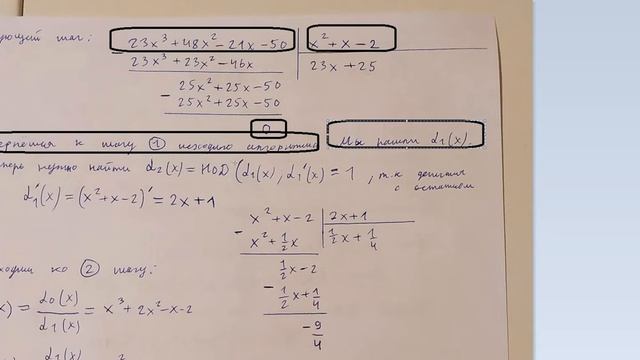 ующий шаг:
23x³ + 48x² - 21x - 50 | x² + x - 2
- 23x³ + 23x² - 46x | 23x + 25
25x² + 25x - 50
- 25x² + 25x - 50
0
к шагу ① исходного алгоритма. Мы нашли d₁(x).
перь нужно найти d₂(x) = НОД (d₁(x), d₁'(x) = 1, т.к. деление с остатком
d₁'(x) = (x² + x - 2)' = 2x + 1
x² + x - 2 | 2x + 1
- x² + 1/2 x | 1/2 x + 1/4
1/2 x - 2
- 1/2 x + 1/4
- 9/4
ходим ко ② шагу:
x) = d₀(x)/d₁(x) = x³ + 2x² - x - 2
d₁(x)